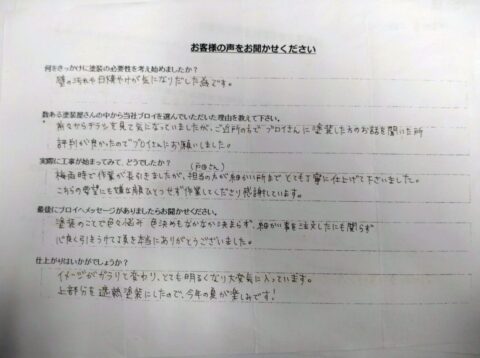 お客様の声をお聞かせください
何をきっかけに塗装の必要性を考え始めましたか?
壁の汚れや日焼やけが気になりだした為です。
数ある塗装屋さんの中から当社ブロイを選んでいただいた理由を教えて下さい。
前々からチラシを見て気になっていましたが、ご近所の方でブロイさんに塗装した方のお話を聞いた所
評判が良かったのでブロイさんにお願いしました。
実際に工事が始まってみて、どうでしたか?
(戸田さん)
梅雨時で作業が長引きましたが、担当の方が細かい所までとても丁寧に仕上げて下さいました。
こちらの要望にも嫌な顔ひとつせず作業してくださり感謝しています。
最後にブロイへメッセージがありましたらお聞かせください。
塗装のことで色々悩み 色決めもなかなか決まらず、細かい事を注文したにも関らず
心良く引きうけて頂き本当にありがとうございました。
仕上がりはいかがでしょうか?
イメージがガラリと変わり、とても明るくなり大変気に入っています。
上部分を遮熱塗装にしたので、今年の夏が楽しみです!